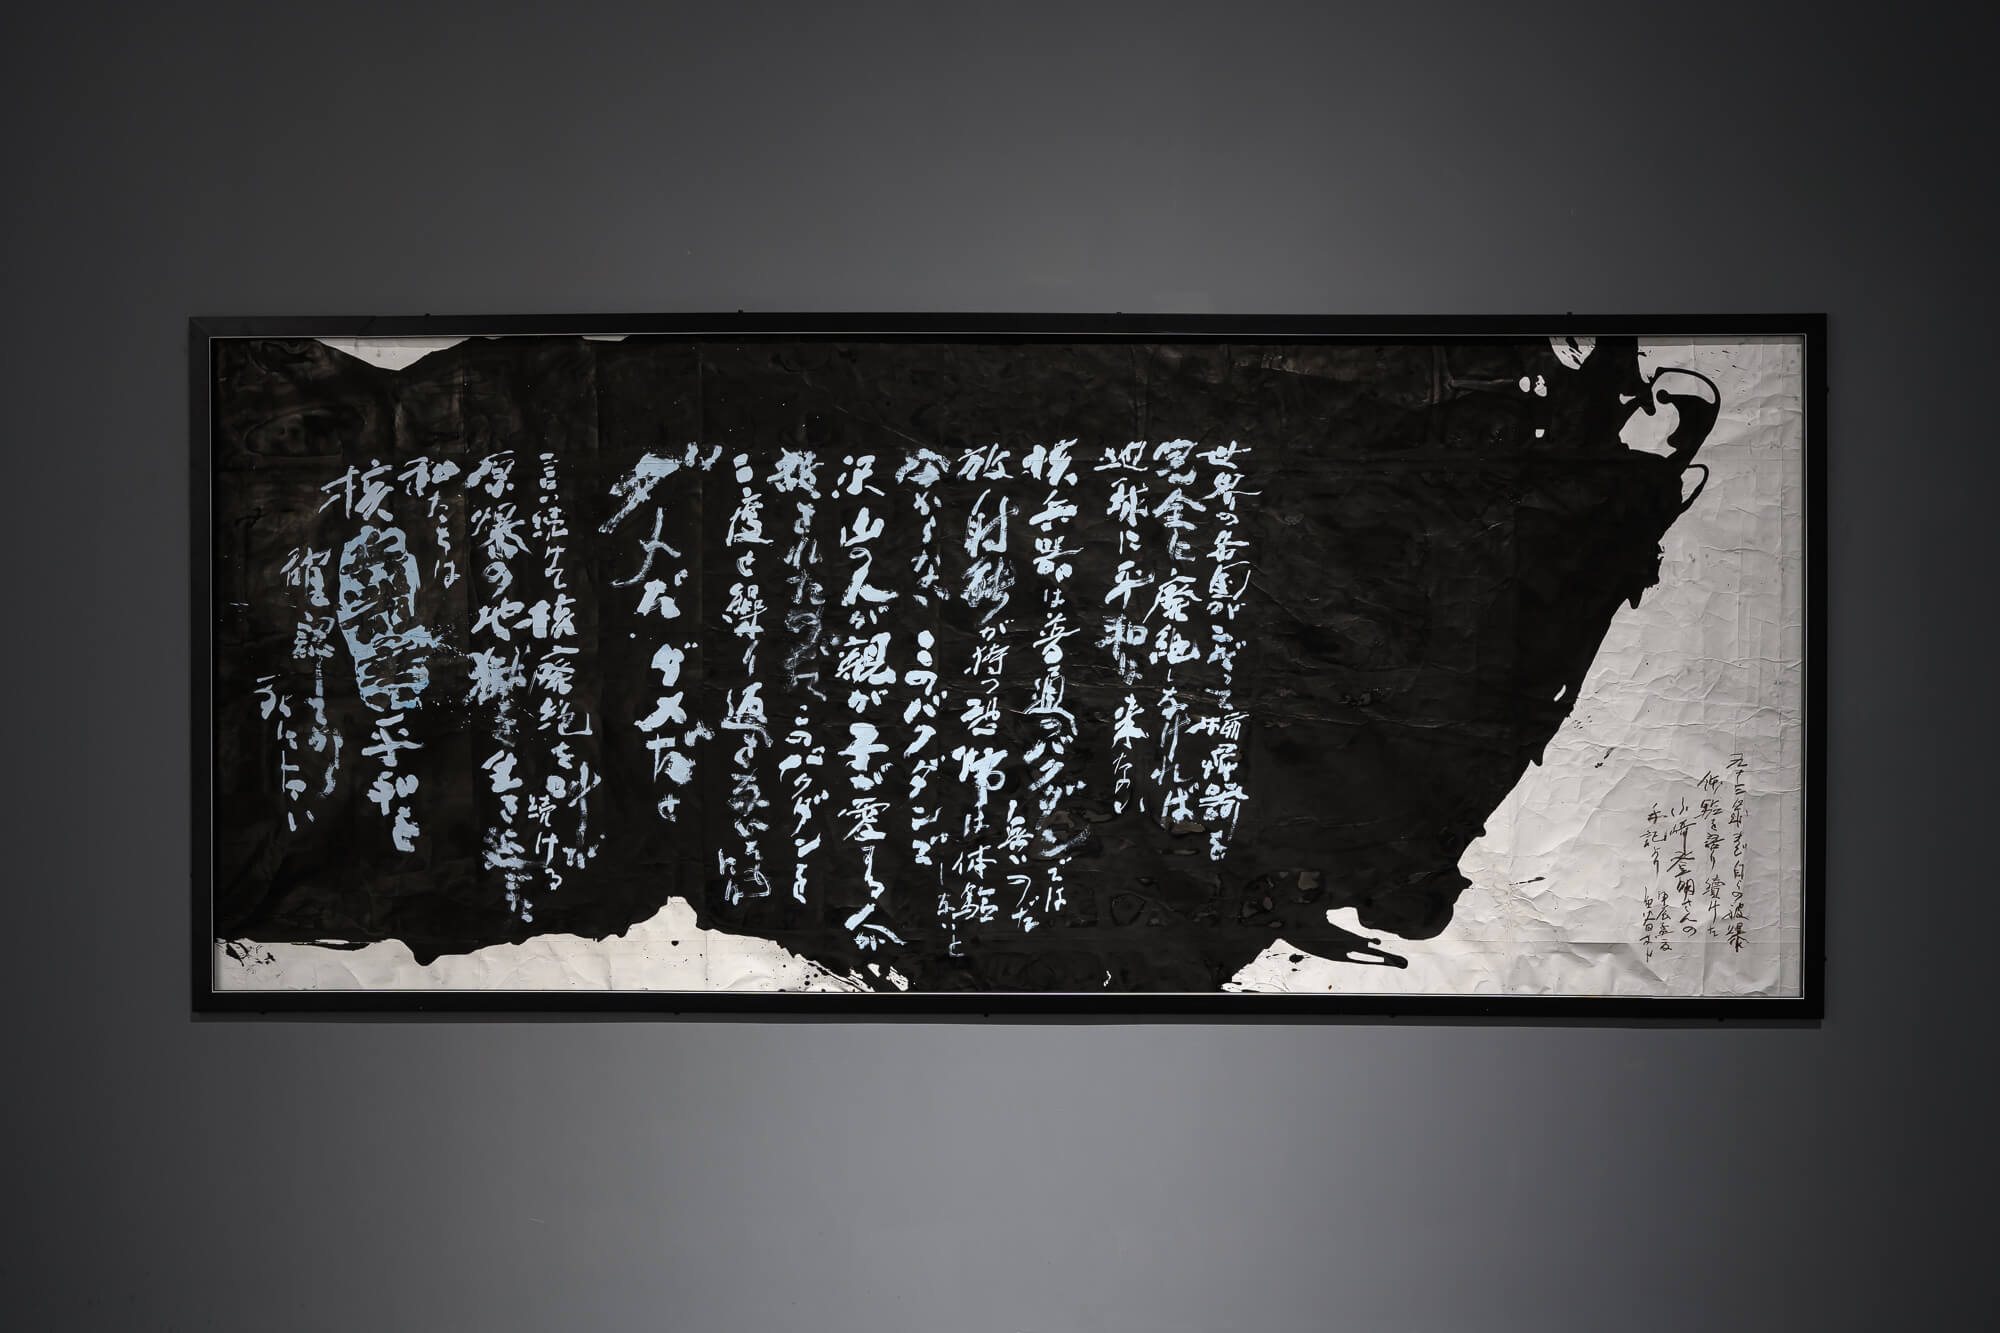 世界の各国がこぞって
完全に廃絶しなければ
地球に平和は来ない
核兵器は普通のバクダンでは
無いのだ
放射能が持つ恐怖は体験
しないと
分からない このバクダンで
沢山の人が 親が 子が 愛する人が
殺されたのだ このバクダンを
二度と繰り返
ダメだ ダメだと
言い続けて 核廃絶を叫び
続ける
原爆の地獄を生き延びた
私たちは
核 平和を
確認してから
死にたい
九十三歳まで自らの被爆
体験を語り續けた
小崎登明さんの
手記より
甲辰